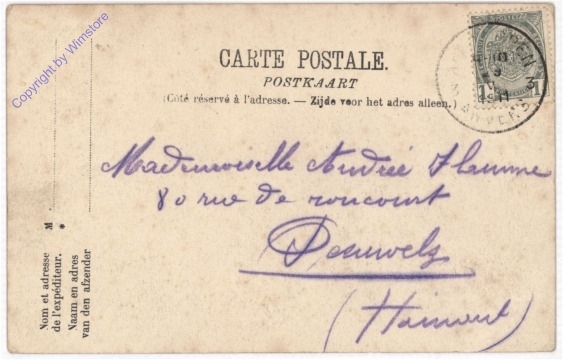 Copyright by Wimstore
CARTE POSTALE.
POSTKAART
(Côté réservé à l'adresse. — Zijde voor het adres alleen.)
1 1
1911
ANVERS
3 3
Mademoiselle Andrée Flamme
80 rue de roucourt
Peruwelz
(Hainaut)
M
*
Nom et adresse
de l'expéditeur.
Naam en adres
van den afzender